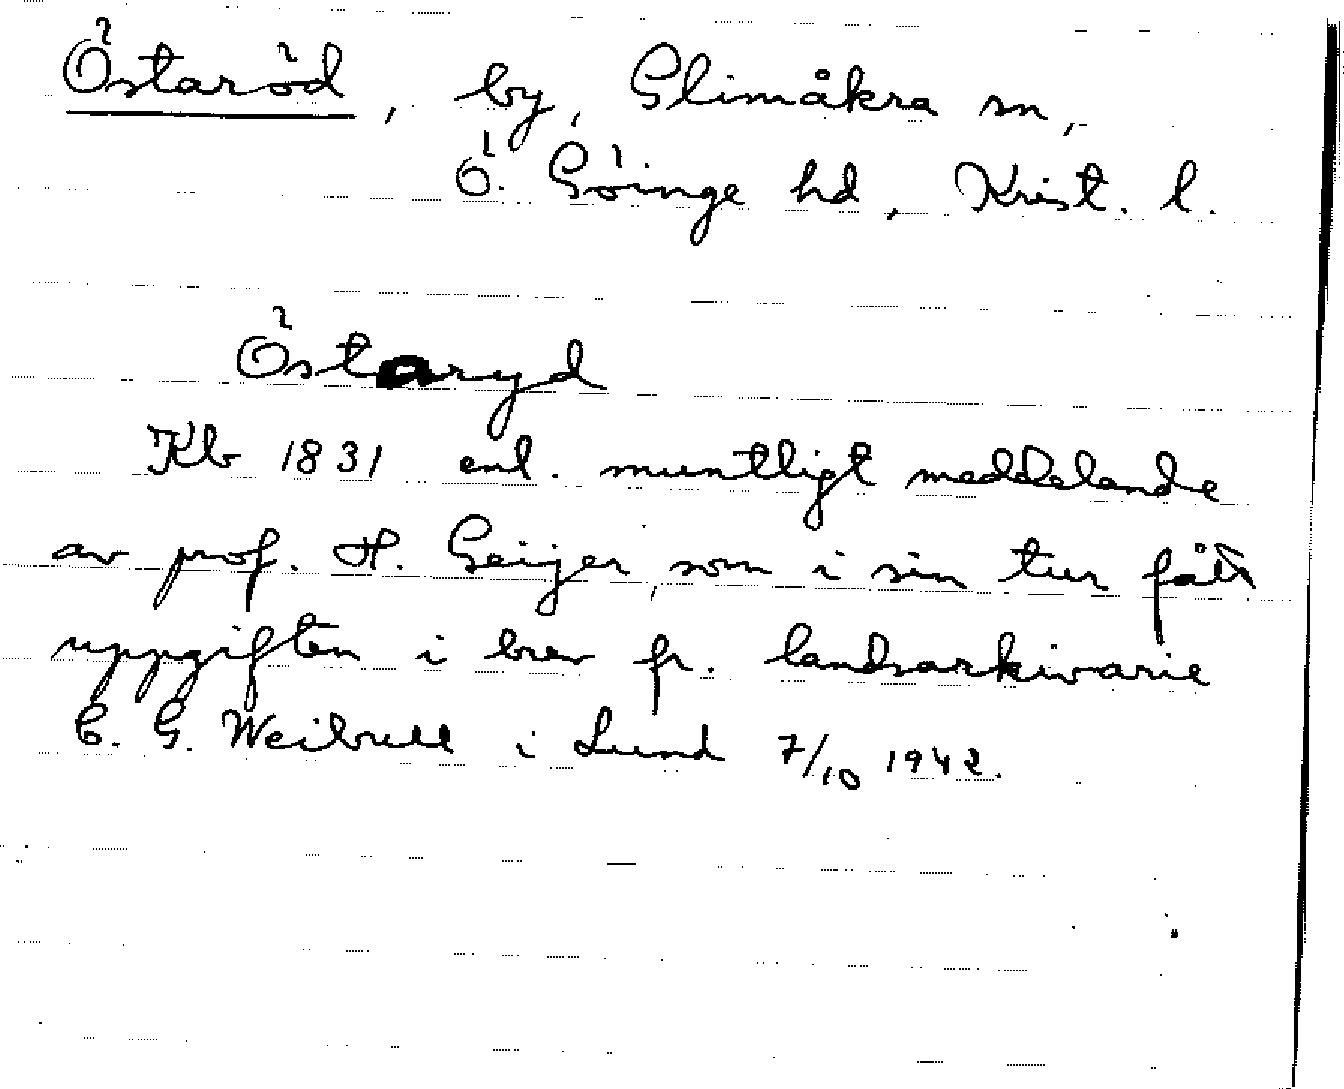 Östaröd, by, Glimåkra sn,
Ö. Göinge hd, Krist. l.
Östaryd
Kb 1831 enl. muntligt meddelande
av prof. H. Geijer, som i sin tur fått
uppgiften i brev fr. landsarkivarie
C. G. Weibull i Lund 7/10 1942.